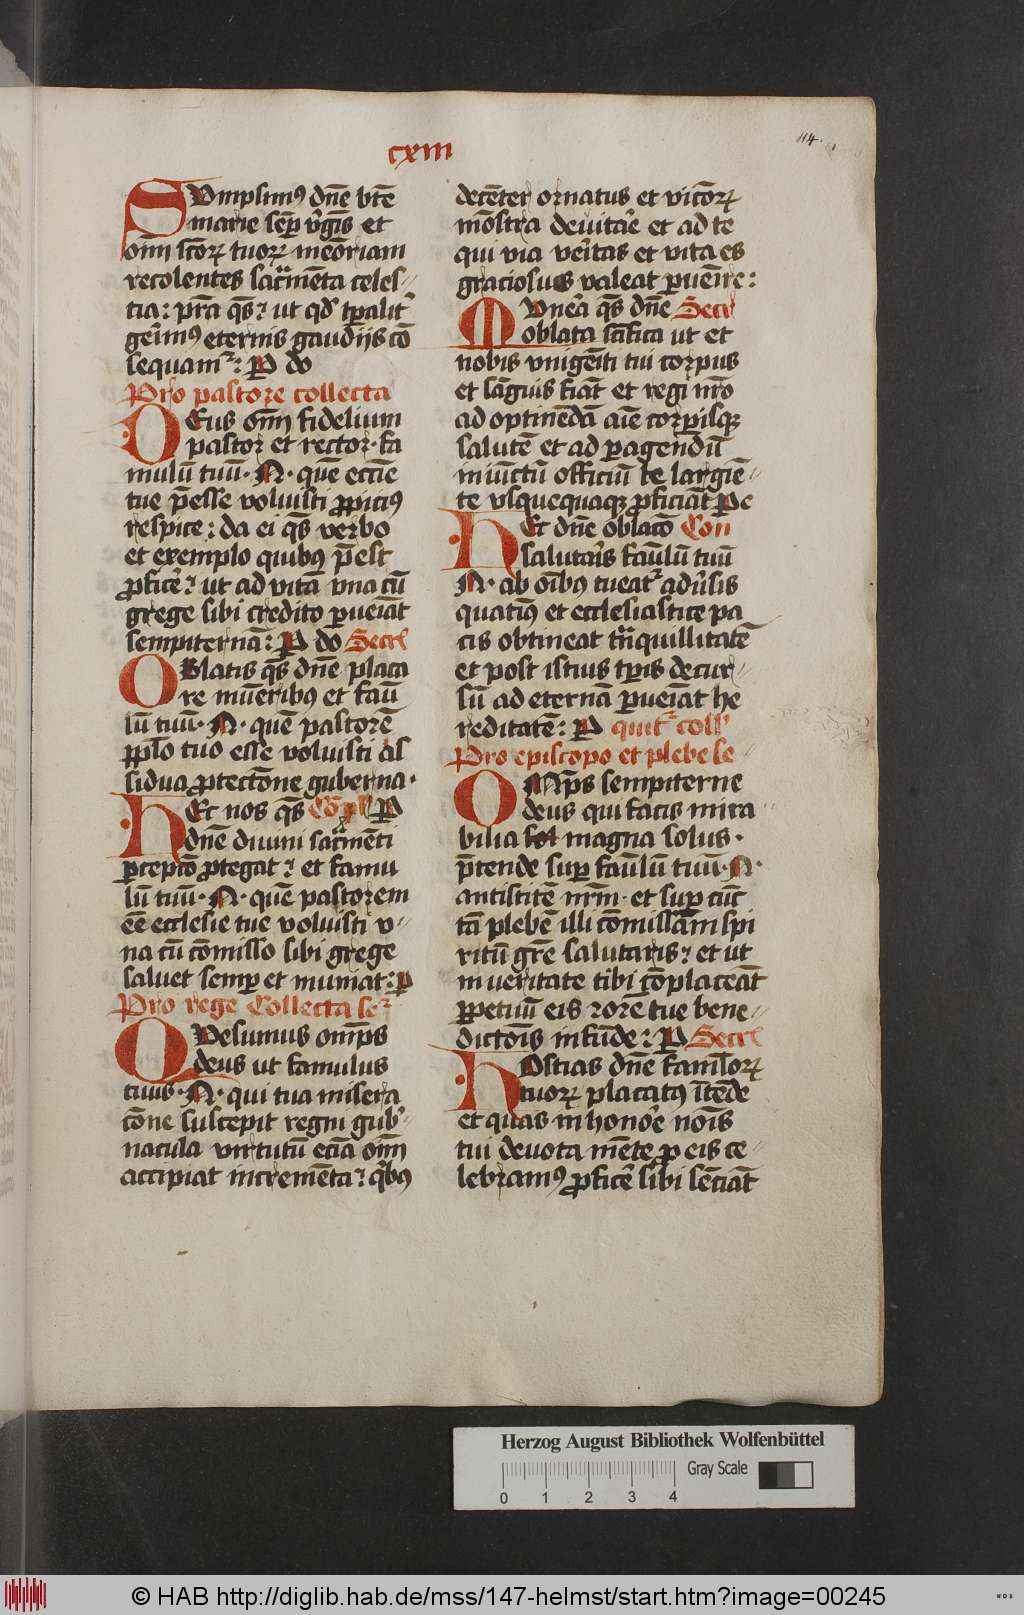 cxiii
114.
SUmpsimꝰ dn̄e bt̄e
marie semꝑ v̓gīs et
om̄ī scōꝝ tuoꝝ memōriam
recolentes sacͣmēta celes-
tia: pͬa qs̄ ut qd̓ tp̄alit̓
ger̓imꝰ eternis gaudijs cō
sequamͬ: P do
Pro pastore collecta
DEus om̄ī fidelium
pastor et rector· fa
mulū tuū· N· quē eccl̄ie
tue p̄esse voluisti ꝓpiciꝰ
respice: da ei qs̄ verbo
et exemplo quibꝰ p̄est
ꝓficē ut ad vitā vna cū
grege sibi credito ꝑueiāt
sempiternā: P do Secret
OBlatis qs̄ dn̄e placa
re mūeribꝰ et faūl
lū tuū· N· quē pastorē
ppl̄o tuo esse voluisti as
sidua ꝓtectōne guberna·
HEc nos qs̄ Cōpl P
dn̄e diuini sacͣmēti
ꝑceptō ꝓtegat et famu
lū tuū· N· quē pastorem
eē ecclesie tue voluisti v-
na cū cōmisso sibi grege
saluet semꝑ et muniat: P
Pro rege Collecta se
QUesumus omp̄s
deus ut famulus
tuus· N· qui tua misera
cōne suscepit regni gub̓-
nacula virtutū eciā om̄ī
accipiat incremēta qͥbꝰ
decēter ornatus et vicōꝝ
mōstra deuitar̓e et ad te
qui via ver̓itas et vita es
graciosus valeat ꝑuēire:
MUner̓a qs̄ dn̄e Secr
oblata sāt̄ifica ut et
nobis vnigēiti tui corpus
et sāguis fiāt et regi nr̄o
ad optinēdā aīe corꝑisqꝫ
salutē et ad ꝑagendū
iniūctū officiū te largiē-
te vsquequaqꝫ ꝓficiāt Pe
HEc dn̄e oblacō Con
salutar̓is faūlū tuū
N· ab oībꝰ tueatͬ adūsis
quatinꝰ et ecclesiastice pa
cis obtineat tͣnquillitatē
et post istius tꝑis decur-
sū ad eternā ꝑueiāt he
reditatē: P quitͬ coll
Pro episcopo et plebe se-
OMp̄s sempiterne
deus qui facis mira-
bilia sol magna solus·
p̄tende suꝑ faūlū tuū· N·
antistitē nr̄m· et suꝑ cūc
tā plebē illi cōmissam spi
ritū gr̄e salutaris et ut
in veritate tibi cōplaceāt
ꝑpetuū eis rorē tue bene-
dictōis infūde: P Secret
HOstias dn̄e famloꝝ
tuoꝝ placatꝰ ītēde
et quas in honor̓e nōīs
tui deuota mēte ꝓ eis ce-
lebramꝰ ꝓficē sibi sēciāt
Herzog August Bibliothek Wolfenbüttel
Gray Scale
0 1 2 3 4
© HAB http://diglib.hab.de/mss/147-helmst/start.htm?image=00245